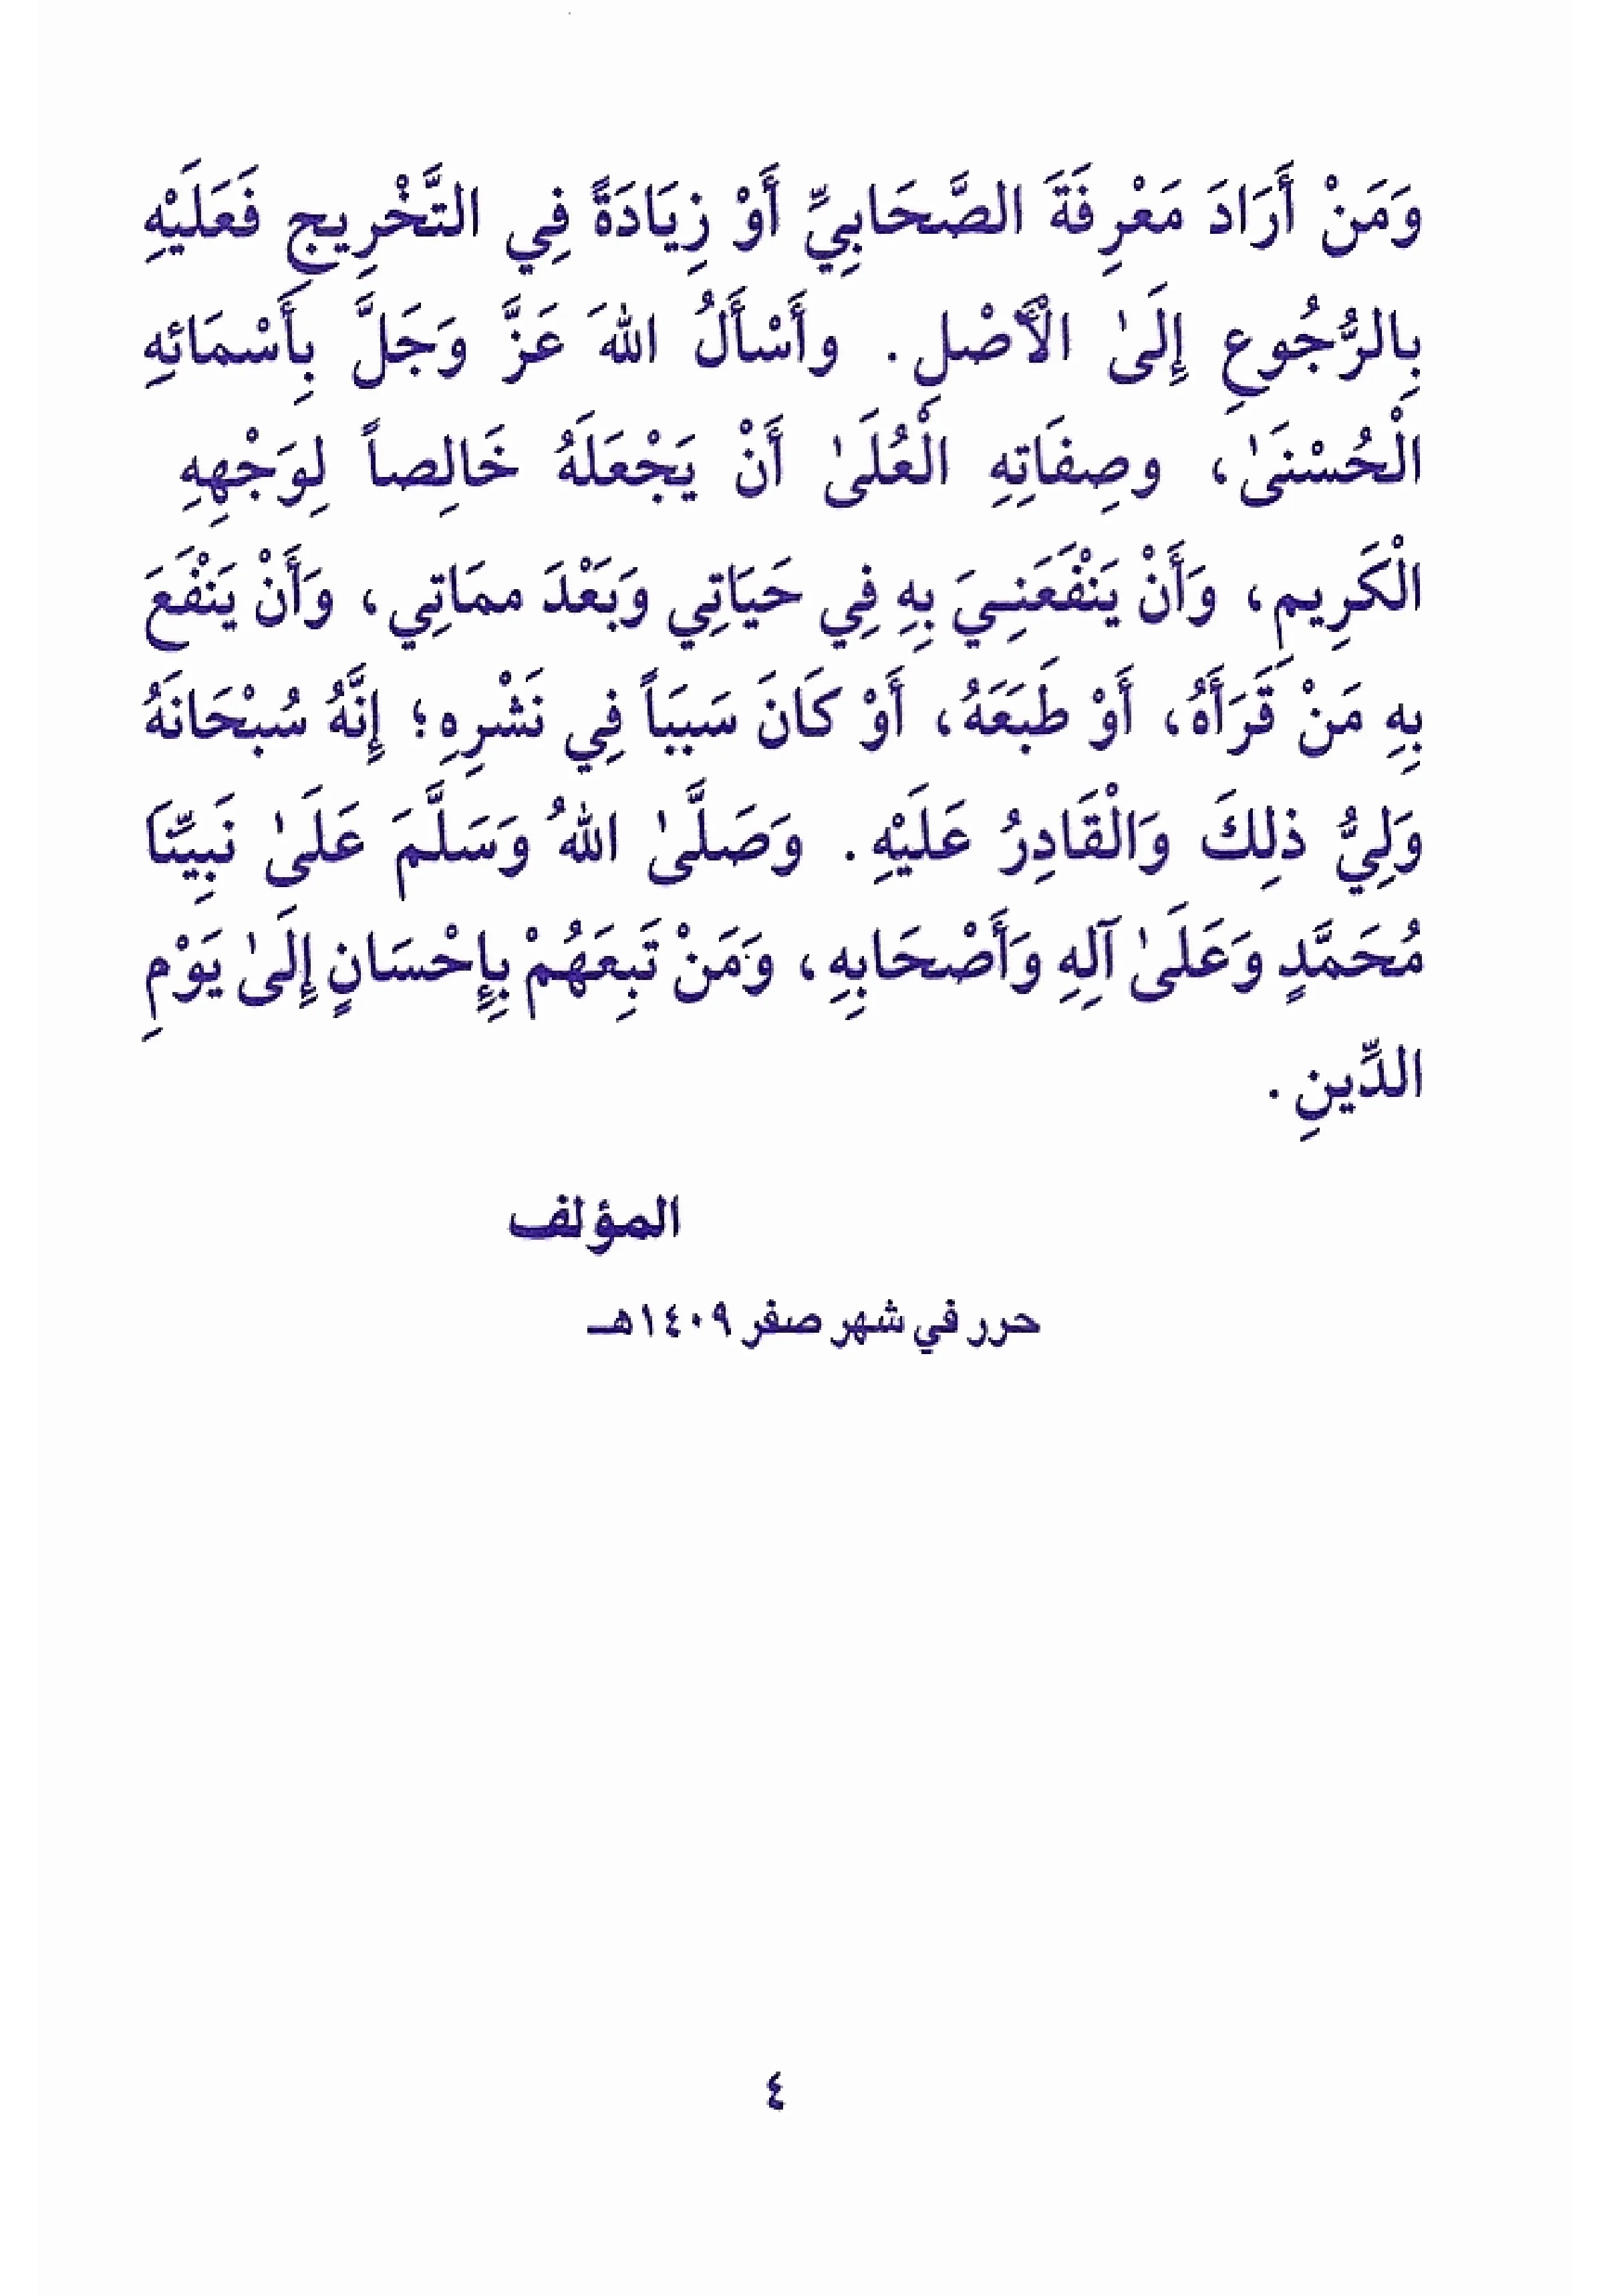 وَمَنْ أَرَادَ مَعْرِفَةَ الصَّحَابِيِّ أَوْ زِيَادَةً فِي التَّخْرِيجِ فَعَلَيْهِ
بِالرُّجُوعِ إِلَىٰ الْأَصْلِ. وأَسْأَلُ اللهَ عَزَّ وَجَلَّ بِأَسْمَائِهِ
الْحُسْنَىٰ، وصِفَاتِهِ الْعُلَىٰ أَنْ يَجْعَلَهُ خَالِصاً لِوَجْهِهِ
الْكَرِيمِ، وَأَنْ يَنْفَعَنِيَ بِهِ فِي حَيَاتِي وَبَعْدَ ممَاتِي، وَأَنْ يَنْفَعَ
بِهِ مَنْ قَرَأَهُ، أَوْ طَبَعَهُ، أَوْ كَانَ سَبَبَاً فِي نَشْرِهِ؛ إِنَّهُ سُبْحَانَهُ
وَلِيُّ ذلِكَ وَالْقَادِرُ عَلَيْهِ. وَصَلَّىٰ اللهُ وَسَلَّمَ عَلَىٰ نَبِيِّنَا
مُحَمَّدٍ وَعَلَىٰ آلِهِ وَأَصْحَابِهِ، وَمَنْ تَبِعَهُمْ بِإِحْسَانٍ إِلَىٰ يَوْمِ
الدِّينِ.
المؤلف
حرر في شهر صفر ١٤٠٩هـ
٤